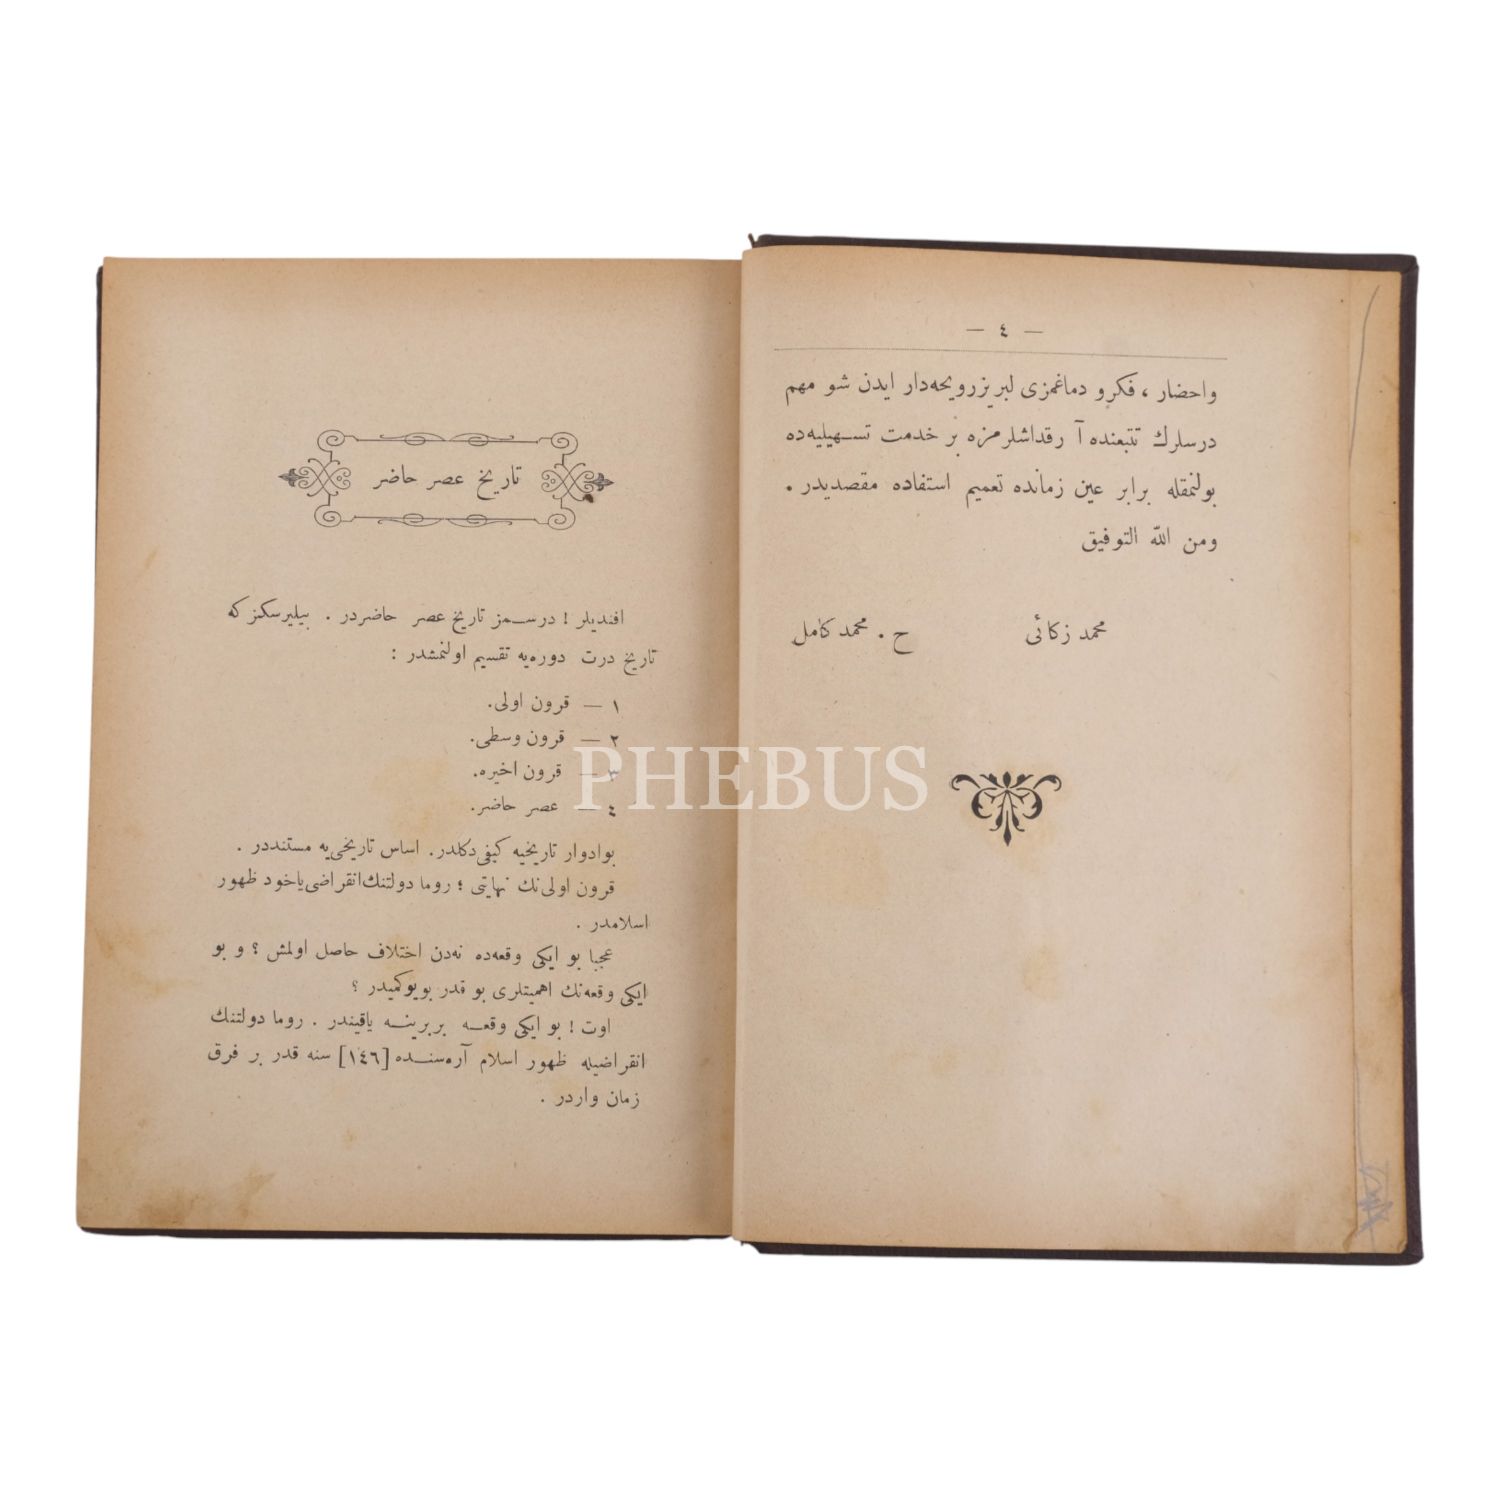 — ٤ —
واحضار ، فكر و دماغمزى لبريز رويحه‌دار ايدن شو مهم
درسلرك تتبعنده آ رقداشلرمزه بر خدمت تسهيليه‌ده
بولنمقله برابر عين زمانده تعميم استفاده مقصديدر .
ومن الله التوفيق
محمد زكائى ح . محمد كامل
تاريخ عصر حاضر
افنديلر ! درسمز تاريخ عصر حاضردر . بيليرسكز كه
تاريخ درت دوره‌يه تقسيم اولنمشدر :
١ — قرون اولى.
٢ — قرون وسطى.
٣ — قرون اخيره.
٤ — عصر حاضر.
بو ادوار تاريخيه كيفى دكلدر. اساس تاريخى‌يه مستنددر .
قرون اولى‌نك نهايتى ؛ روما دولتنك انقراضى ياخود ظهور
اسلامدر .
عجبا بو ايكى وقعه‌ده نه‌دن اختلاف حاصل اولمش ؟ و بو
ايكى وقعه‌نك اهميتلرى بو قدر بويوكميدر ؟
اوت ! بو ايكى وقعه بربرينه ياقيندر . روما دولتنك
انقراضيله ظهور اسلام آره‌سنده [١٤٦] سنه قدر بر فرق
زمان واردر .
PHEBUS